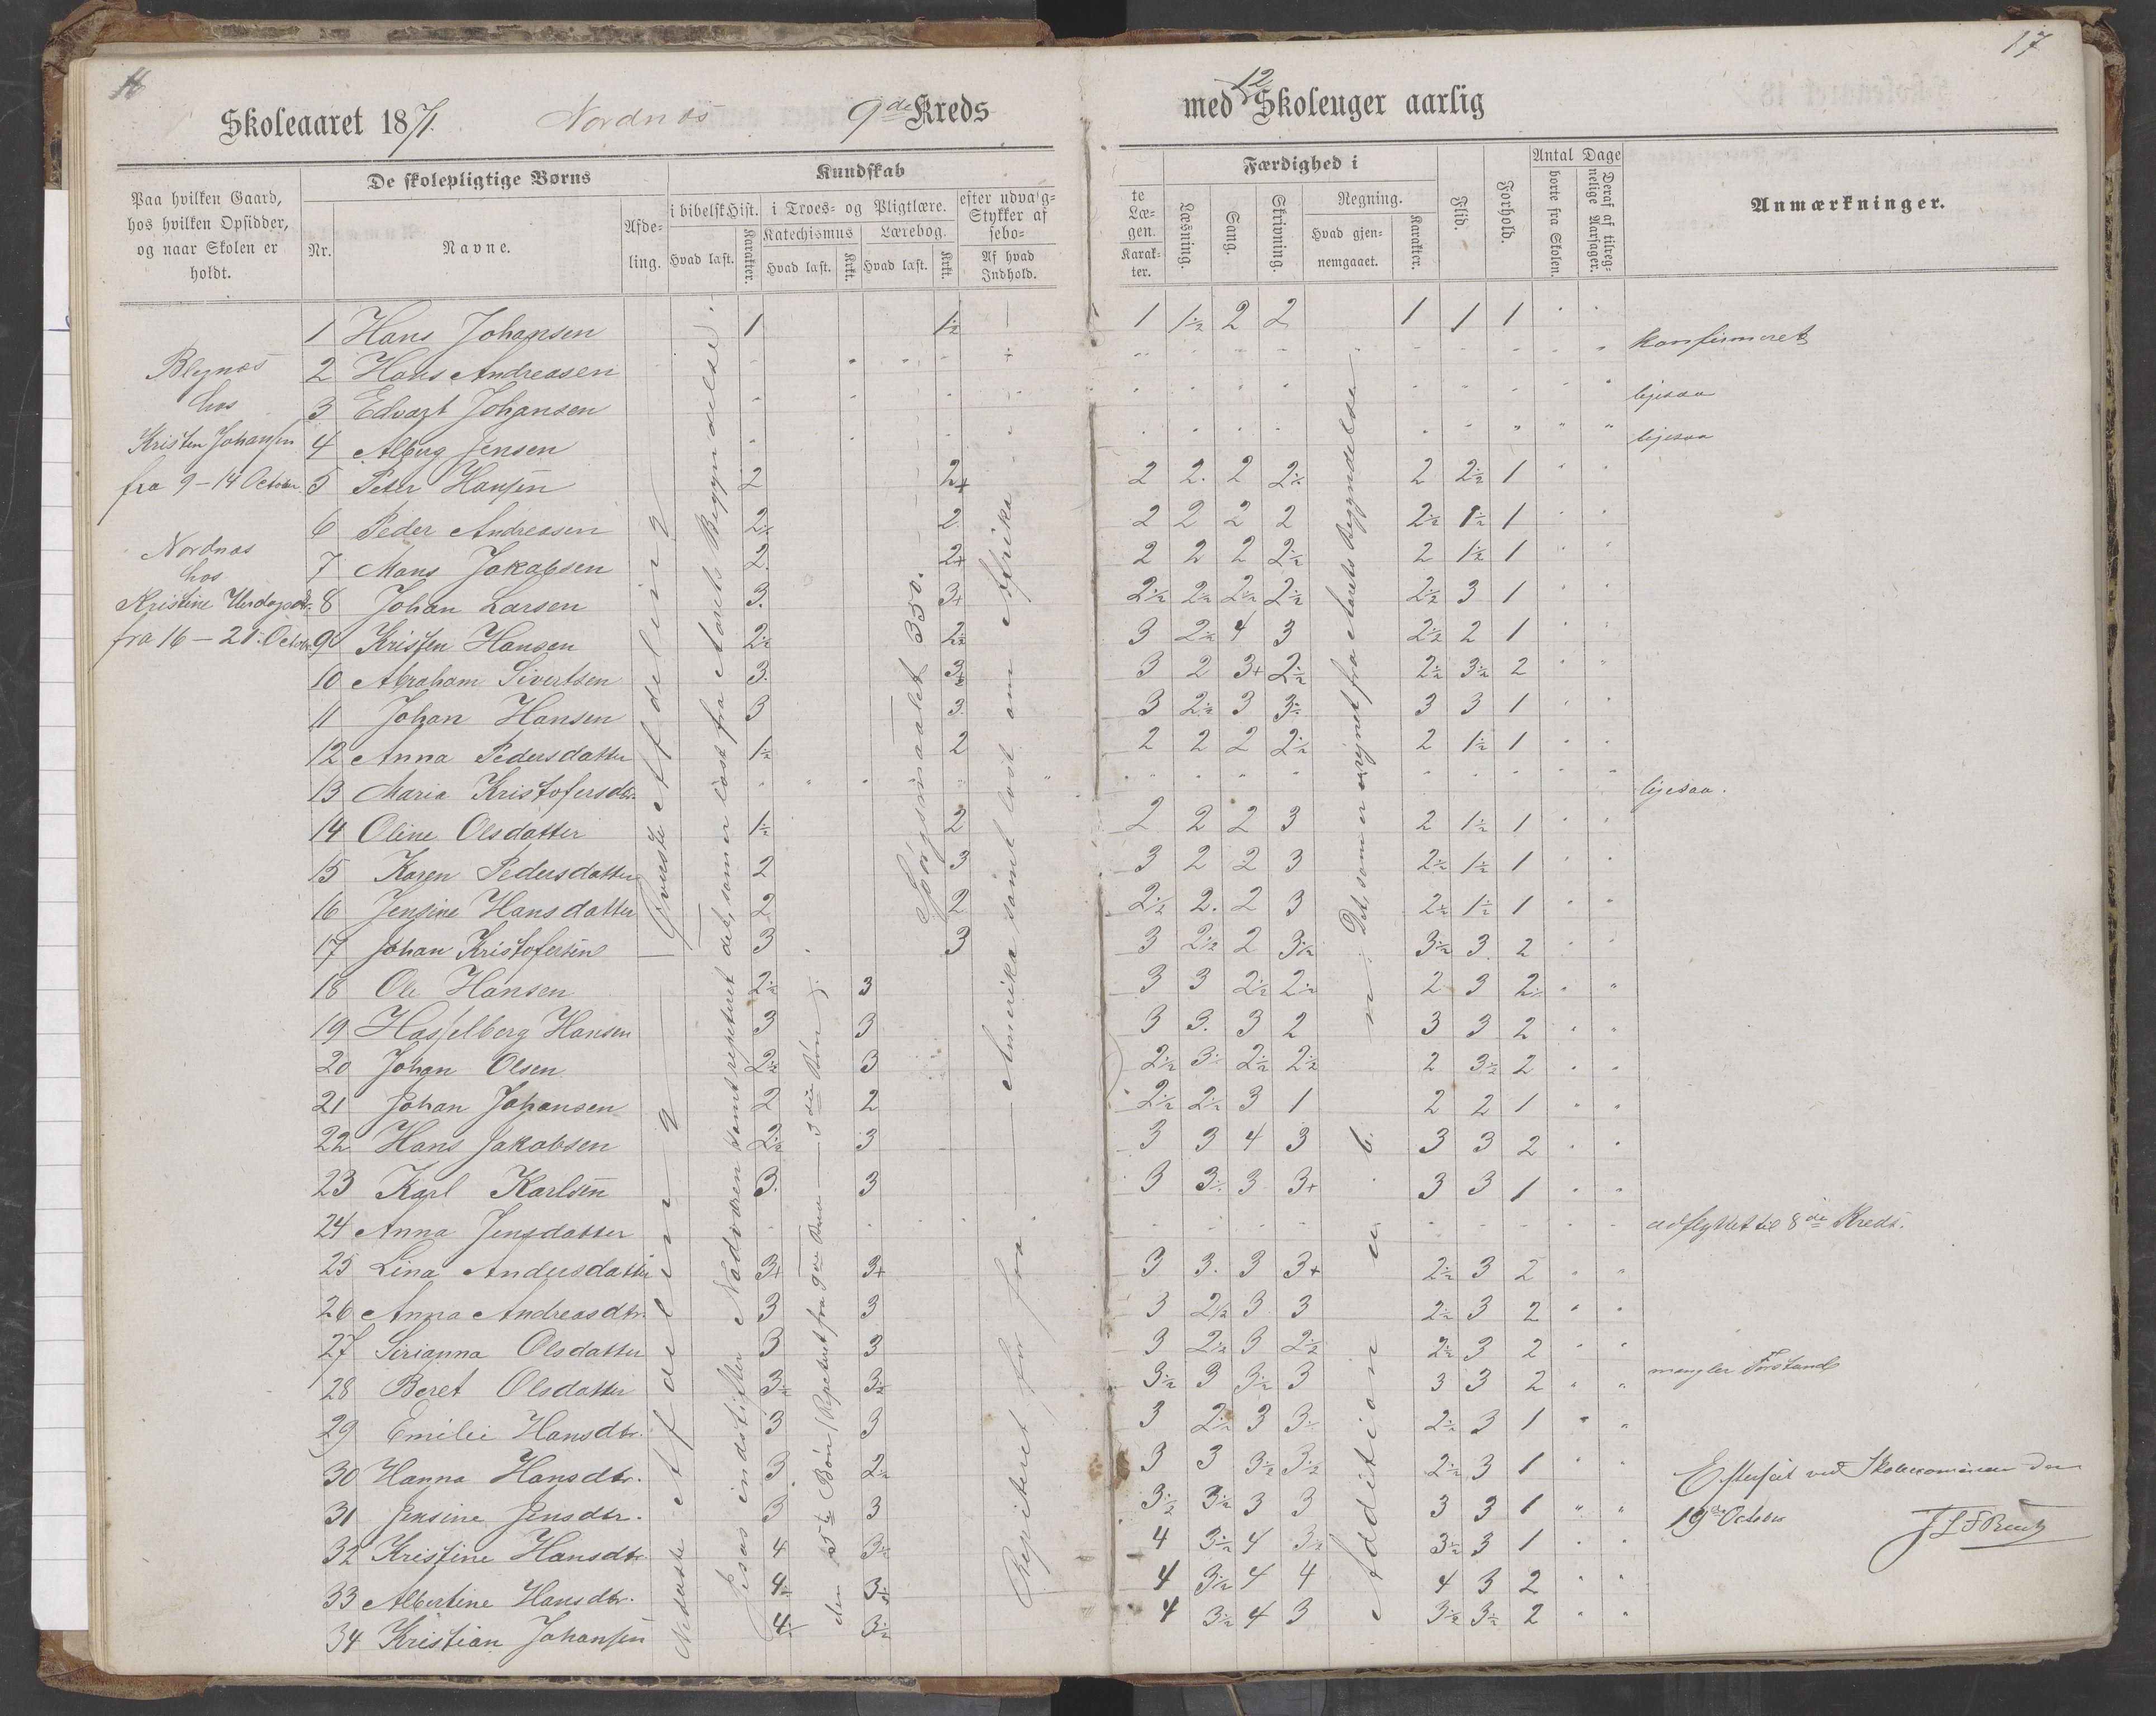 17
Skoleaaret 1871. Nordnæs 9de Kreds
med 12 Skoleuger aarlig
Paa hvilken Gaard, hos hvilken Opsidder, og naar Skolen er holdt.
De skolepligtige Børns
Nr. Navne. Afdeling.
Kundskab
i bibelsk Hist. i Troes- og Pligtlære. efter udvalg-
Stykker af
Katechismus Lærebog. sebo-
Hvad læst. Karakter. Hvad læst. Krkt. Hvad læst. Krkt. Af hvad Indhold.
te Læ-
gen.
Karakter.
Færdighed i
Læsning. Sang. Skrivning. Regning.
Hvad gjennemgaaet. Karakter.
Flid. Forhold.
Antal Dage
borte fra Skolen. Deraf af tilregnelige Aarsager.
Anmærkninger.
Blegnæs
hos
Kristen Johansen
fra 9-14 October.
Nordnæs
hos
Kristine
fra 16-21. Octobr.
1 Hans Johansen 1 1½ 1 1½ 2 2 1 1 1
2 Hans Andreasen konfirmeret
3 Edvart Johansen ligesaa
4 Albug Jensen ligesaa
5 Peter Hansen 2 2+ 2 2. 2 2½ 2 2½ 1
6 Peder Andreasen 2½ 2 2 2 2 2 2½ 1½ 1
7 Mons Jakobsen 2. 2+ 2 2 2 2½ 2 1½ 1
8 Johan Larsen 3. 3+ 2½ 2½ 2½ 2½ 2½ 3 1
9 Kristen Hansen 2½ 2½ 3 2½ 4 3 2½ 2 1
10 Abraham Sivertsen 3. 3½ 3 2 3+ 2½ 2½ 3½ 2
11 Johan Hansen 3 3. 3 2½ 3 3½ 3 3 1
12 Anna Pedersdatter 1½ 2 2 2 2 2½ 2 1½ 1
13 Maria Kristofersdtr. ligesaa.
14 Oline Olsdatter 1½ 2 2 2 2 3 2 1½ 1
15 Karen Pedersdatter 2 3 3 2 2 3 2½ 1½ 1
16 Jensine Hansdatter 2 2 2½ 2. 2 3 2½ 1½ 1
17 Johan Kristofersen 3 3 3 2½ 2 3½ 3½ 3. 2
18 Ole Hansen 2½ 3 3 3 2½ 2½ 2 3 2½
19 Hasselberg Hansen 3 3 3 3. 3 2 3 3 2
20 Johan Olsen 2½ 3 2½ 3½ 2½ 2½ 2 3½ 2
21 Johan Johansen 2 2 2½ 2½ 3 1 2 2 1
22 Hans Jakobsen 2½ 3 3 3 4 3 3 3 2
23 Karl Karlsen 3. 3 3 3½ 3 3+ 3 3 1
24 Anna Jensdatter udflyttet til 8de Kreds.
25 Lina Andersdatter 3+ 3+ 3 3. 3 3+ 2½ 3 2
26 Anna Andreasdtr. 3 3 3 2½ 3 3 2½ 3 2
27 Sirianna Olsdatter 3 3 3 2½ 3 2½ 2½ 3 2
28 Beret Olsdatter 3½ 3½ 3½ 3 3½ 3 3 3 2 mangler Forstand
29 Emilie Hansdtr. 3 3 3 2½ 3 3½ 2½ 3 1
30 Hanna Hansdtr. 3 2½ 3 3 3½ 3½ 2½ 3 1
31 Jensine Jensdtr. 3 3 3½ 3½ 3 3 3 3 1
32 Kristine Hansdtr. 4 3½ 4 3½ 4 3½ 3½ 3 1
33 Albertine Hansdtr. 4½ 3½ 4 3½ 4 4 4 3 2
34 Kristian Johansen 4½ 3½ 4 3½ 4 3 3½ 3½ 2
Øverste Afdeling
Nederste Afdeling
Jesus indstifter Nadveren samt repeteret det, som er læst fra Aarets Begyndelse.
den 5te Bøn (Repeteret fra 3die Bøn).
Spörgsmaalet 350.
Repeteret for fra Amerika samt læst om Afrika
Addition
Det, som er regnet fra Aarets Begyndelse
Efterseet ved Skolexamen den
19de October